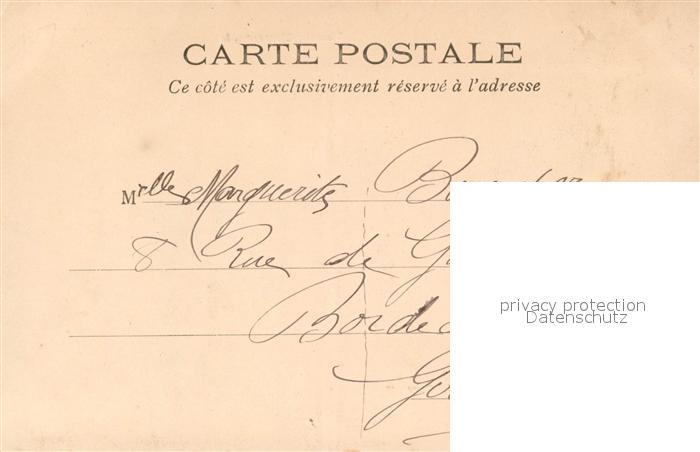 CARTE POSTALE
Ce côté est exclusivement réservé à l'adresse
Mlle Marguerite
8 Rue de
privacy protection
Datenschutz